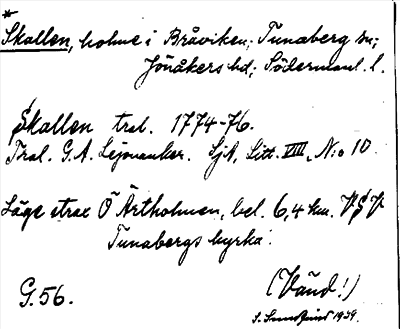 *
Skallen, holme i Bråviken; Tunaberg sn;
Jönåkers hd; Södermanl. l.
Skallen tral. 1774-76.
Tral. G. A. Lejonanker. SjA, Litt. VIII, N:o 10.
Läge strax Ö Ärtholmen, bel. 6,4 km. VSV
Tunabergs kyrka.
G. 56.
(Vänd!)
1939.